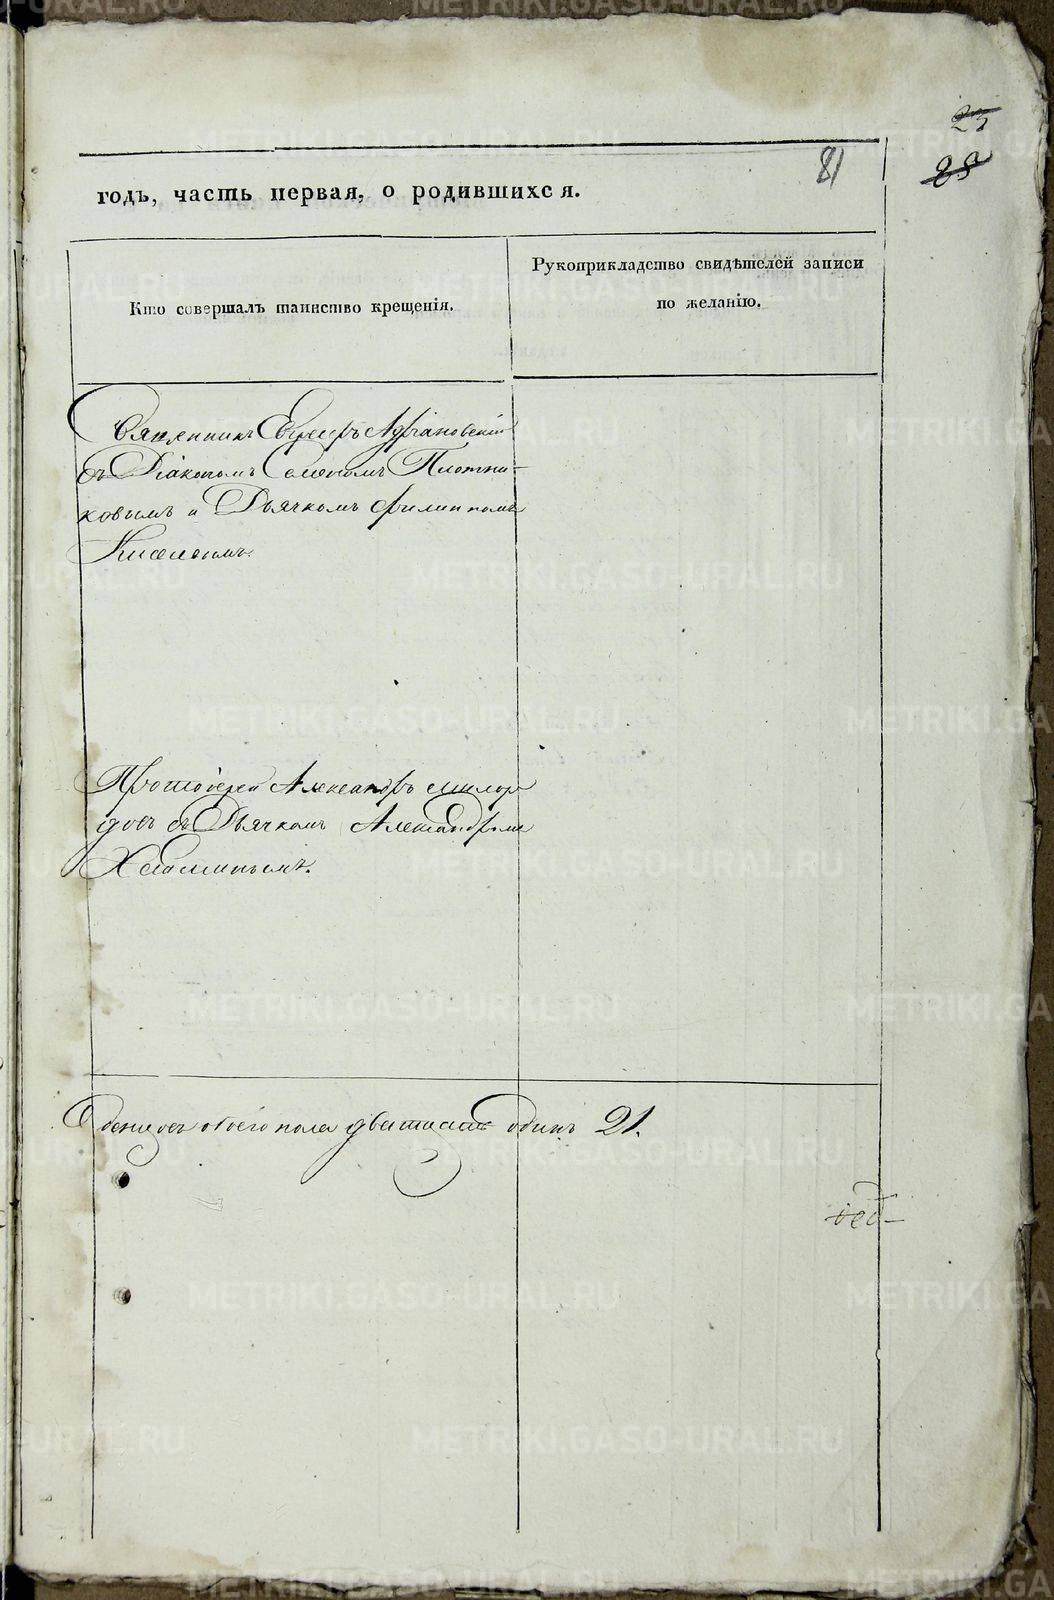 25
28
81
годъ, часть первая, о родившихся.
Кто совершалъ таинство крещенія.
Рукоприкладство свидѣтелей записи
по желанію.
Священникъ
съ Діакономъ Симономъ Плотни-
ковымъ и Дьячкомъ Филиппомъ
Киселевымъ.
Протоіерей Александръ
съ Дьячкомъ Александромъ
обоего пола двадцать одинъ 21.
METRIKI.GASO-URAL.RU